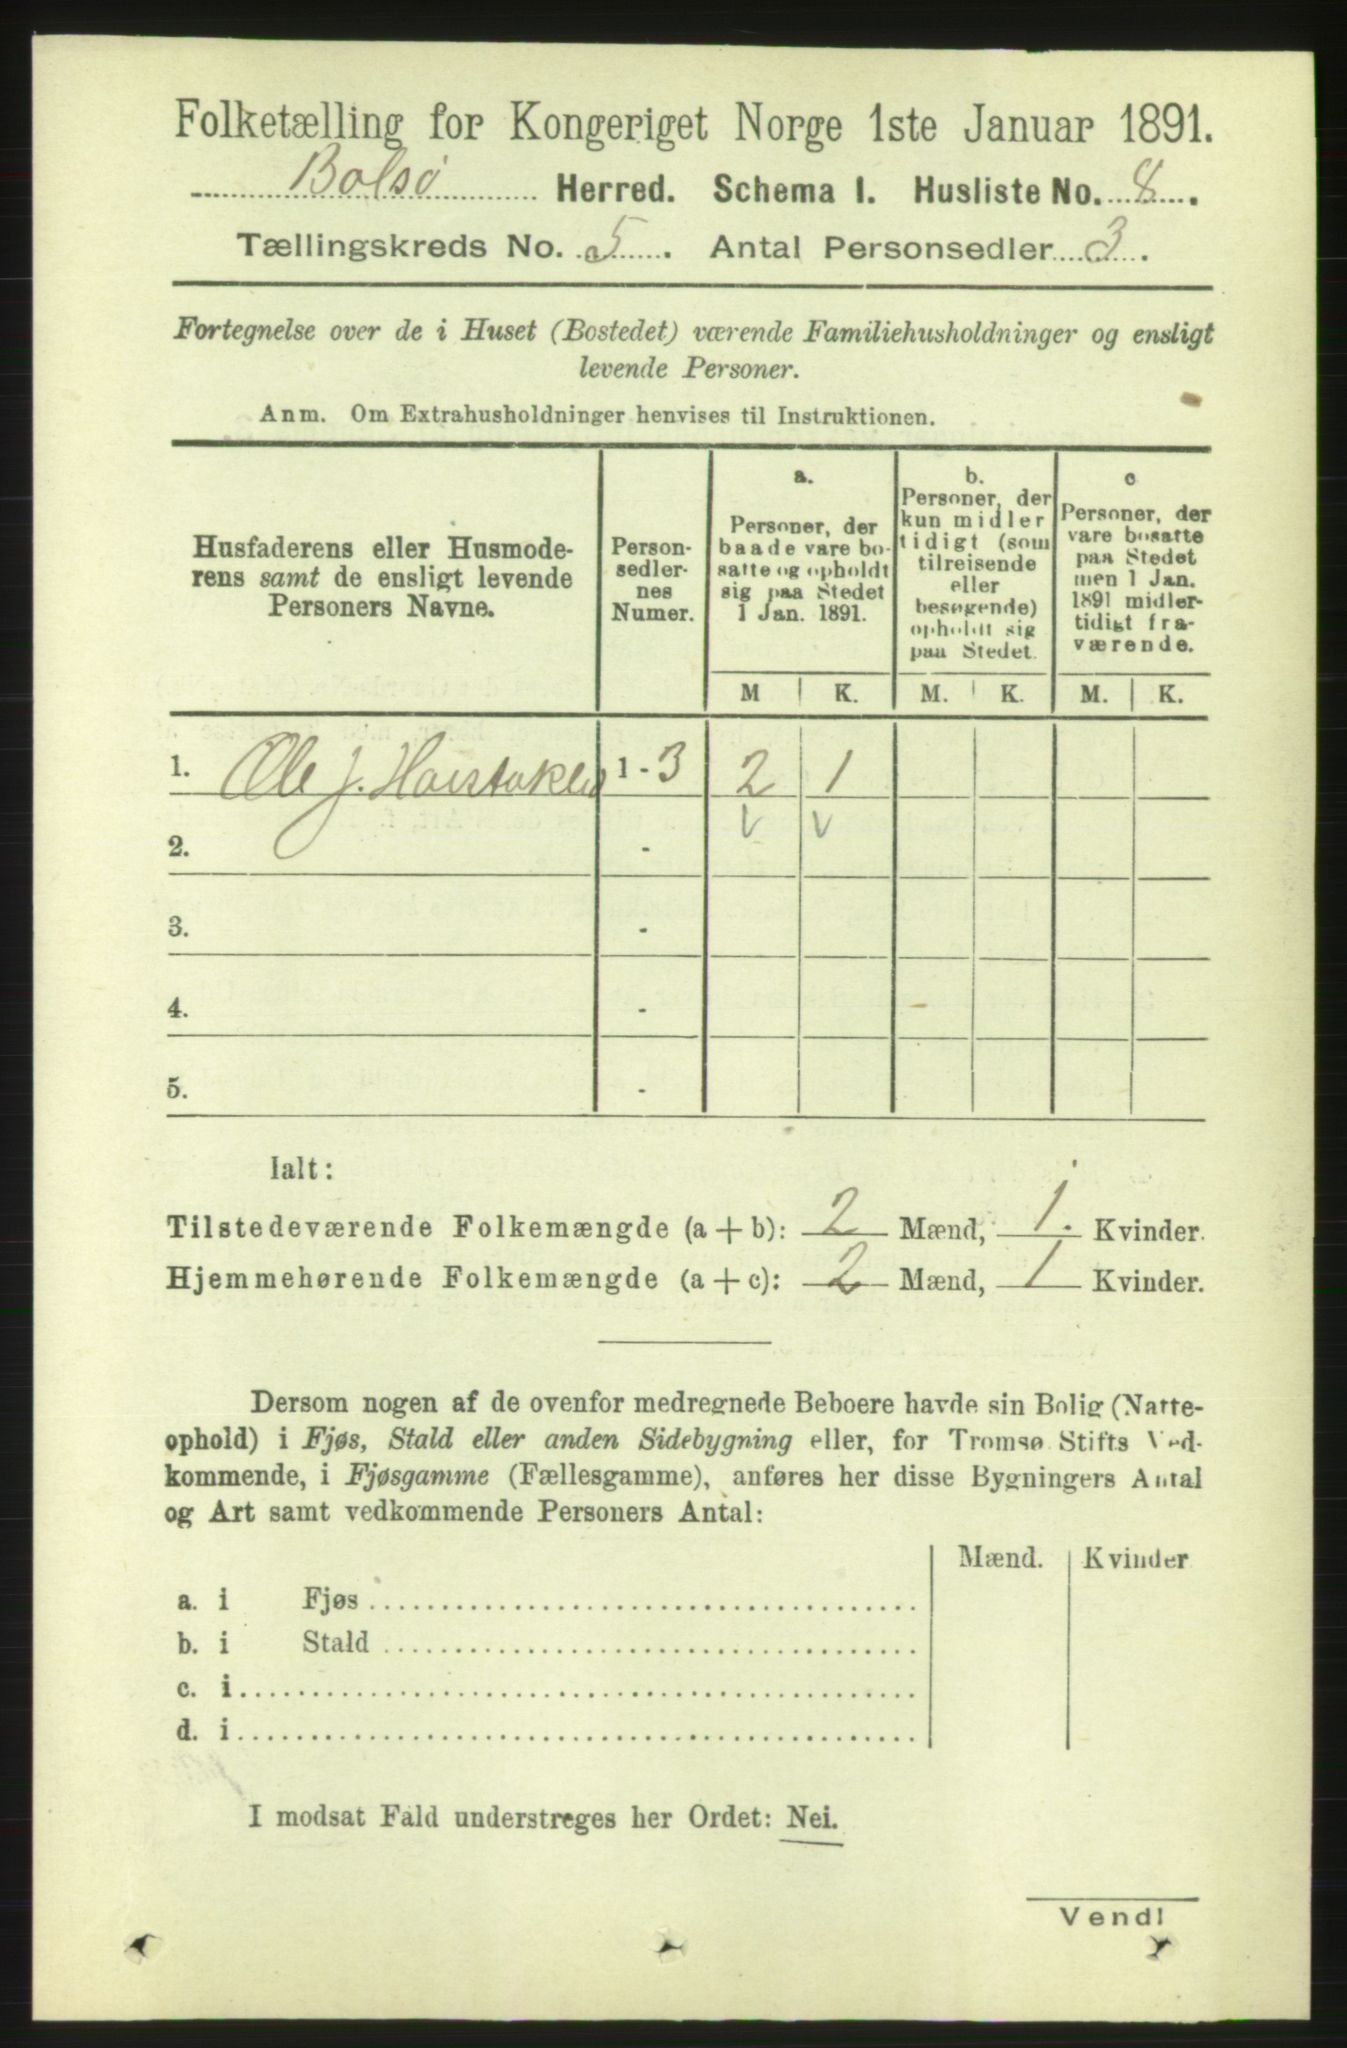 Folketælling for Kongeriget Norge 1ste Januar 1891.
Bolsø Herred. Schema I. Husliste No. 8.
Tællingskreds No. 5. Antal Personsedler 3.
Fortegnelse over de i Huset (Bostedet) værende Familiehusholdninger og ensligt
levende Personer.
Anm. Om Extrahusholdninger henvises til Instruktionen.
Husfaderens eller Husmode-
rens samt de ensligt levende
Personers Navne.
Person-
sedler-
nes
Numer.
a.
Personer, der
baade vare bo-
satte og opholdt
sig paa Stedet
1 Jan. 1891.
b.
Personer, der
kun midler
tidigt (som
tilreisende
eller
besøgende)
opholdt sig
paa Stedet.
c
Personer, der
vare bosatte
paa Stedet
men 1 Jan.
1891 midler-
tidigt fra-
værende.
M K. M. K. M. K.
1. Ole J. 1 - 3 2 1
2. - v v
3. -
4. -
5. -
Ialt:
Tilstedeværende Folkemængde (a + b): 2 Mænd, 1. Kvinder.
Hjemmehørende Folkemængde (a + c): 2 Mænd, 1 Kvinder.
Dersom nogen af de ovenfor medregnede Beboere havde sin Bolig (Natte-
ophold) i Fjøs, Stald eller anden Sidebygning eller, for Tromsø Stifts Ved-
kommende, i Fjøsgamme (Fællesgamme), anføres her disse Bygningers Antal
og Art samt vedkommende Personers Antal:
Mænd. Kvinder
a. i Fjøs
b. i Stald
c. i
d. i
I modsat Fald understreges her Ordet: Nei.
Vend!